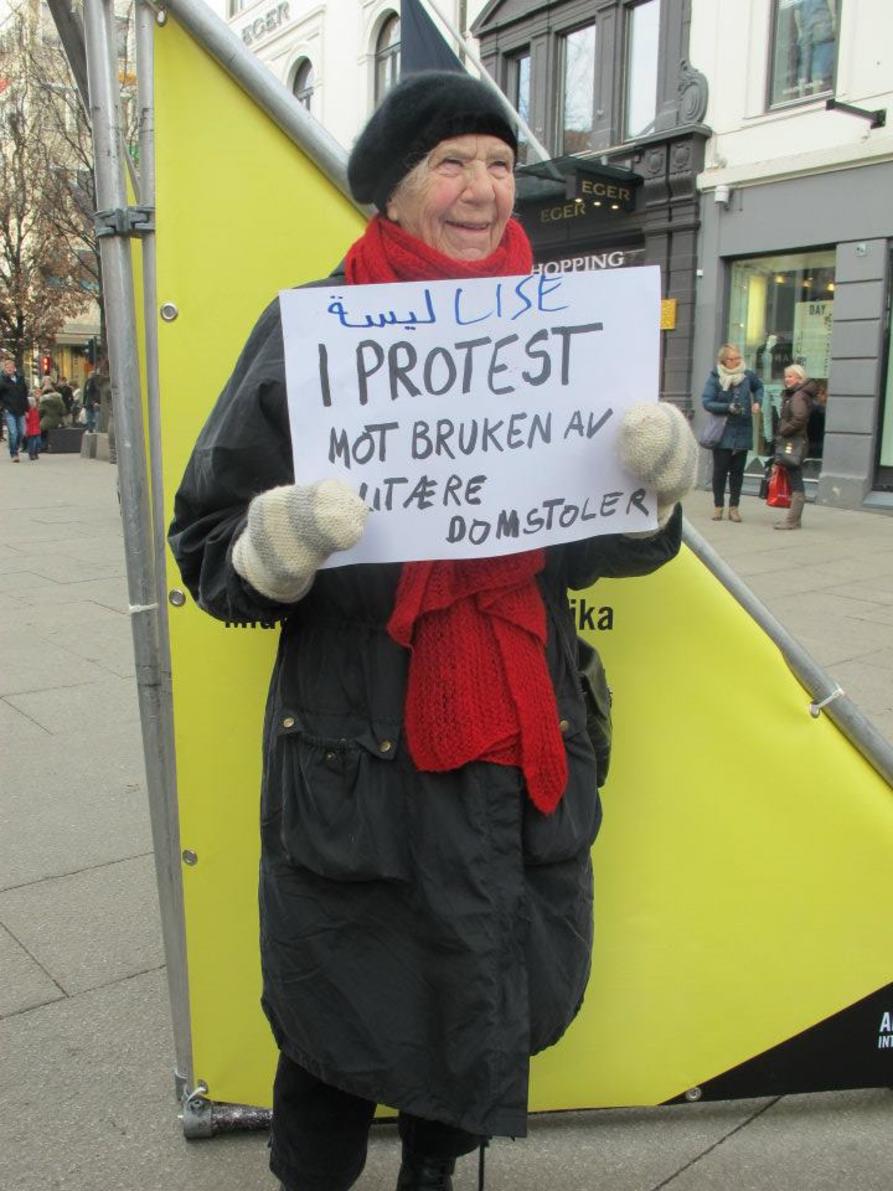 EGER
EGER
EGER
HOPPING
DAY
ليسة LISE
I PROTEST
MOT BRUKEN AV
LITÆRE
DOMSTOLER
ika
A
INT